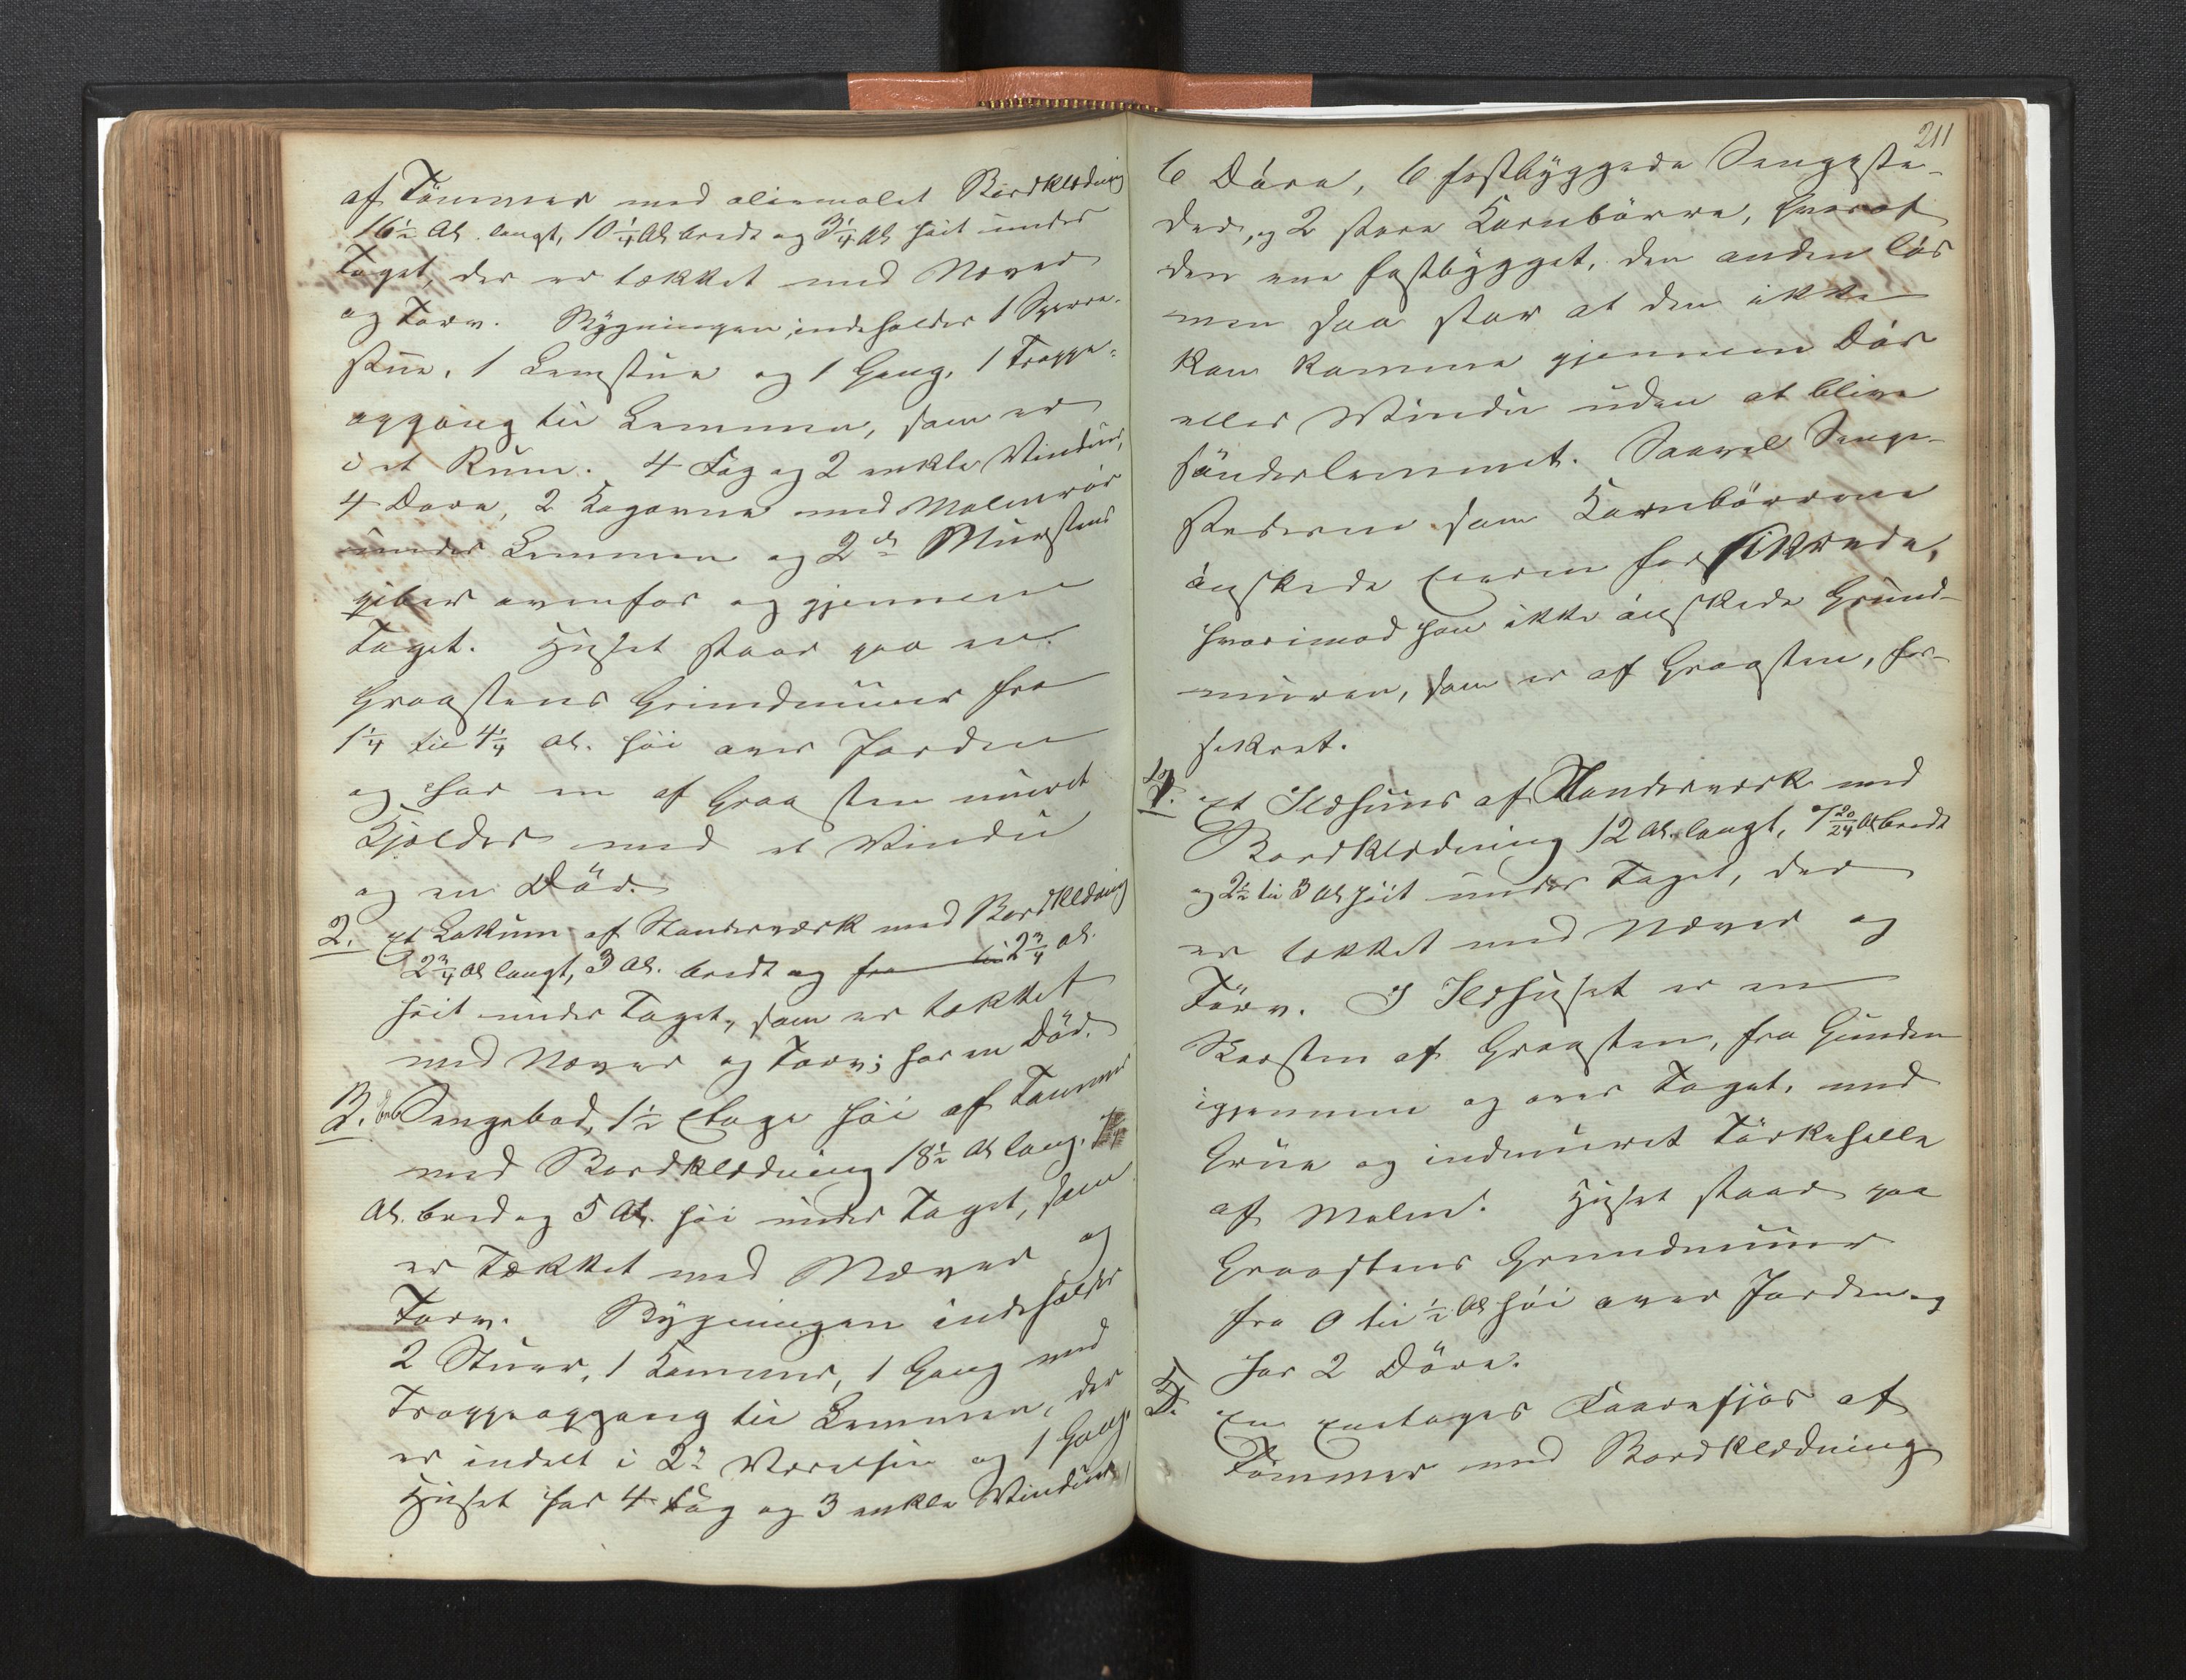 af Tömmer med oliemalet Bordklædning
16½ Al. langt, 10¼ Al bredt og 3¼ Al höit under
Taget, der er tækket med Næver
og Torv. Bygningen indeholder 1 Sperre-
stue, 1 Lemstue og 1 Gang, 1 Trappe-
opgang til Lemmen, som er
i et Rum. 4 Fag og 2 enkle Vinduer,
4 Döre, 2 Kogovne med Malmrör
under Lemmen og 2de Murstens
piber ovenfor og gjennem
Taget. Huset staar paa en
Graastens Grundmuur fra
1¼ til 4¼ Al. höi over Jorden
og har en af Graasten muret
Kjelder med et Vindu
og en Dör.
2. Et Lokum af Stenderværk med Bordklædning
2¾ Al langt, 3 Al. bredt og fra til 2¾ Al.
höit under Taget, som er tækket
med Næver og Torv; har en Dör.
3. Sengebod, 1½ Etage höi af Tömmer
med Bordklædning 18½ Al lang,
Al. bred og 5 Al. höi under Taget, som
er tækket med Næver og
Torv. Bygningen indeholder
2 Stuer, 1 Kammer, 1 Gang med
Trappeopgang til Lemmen, der
er indelt i 2de Værelser og 1 Gang.
Huset har 4 Fag og 3 enkle Vinduer,
211
6 Döre, 6 fastbyggede Sengeste-
der, og 2 store Kornbörrer, hvoraf
den ene fastbygget, den anden lös
men saa stor at den ikke
kan komme gjennem Dör
eller Vindu uden at blive
sönderlemmet. Saavel Senge-
stederne som Kornbörrene
önskede Eieren forsikrede,
hvorimod han ikke önskede Grund-
muren, som er af Graasten, for-
sikret.
4. Et Ildhuus af Stenderværk med
Bordklædning 12 Al. langt, 7 20/24 Al bredt
og 2½ til 3 Al höit under Taget, der
er tækket med Næver og
Törv. I Ildhuset er en
Skorsten af Graasten, fra Grunden
igjennem og over Taget, med
Grue og indmuret Törkehelle
af Malm. Huset staar paa
Graastens Grundmuur
fra 0 til ½ Al höi over Jorden og
har 2 Döre.
5. En Enetages Faarefjös af
Tömmer med Bordklædning